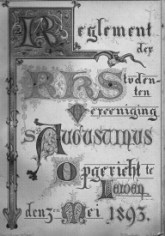 Reglement
der
R.K. Studen-
ten
Vereeniging
S. Augustinus
Opgericht te
Leiden
den 3en Mei 1893.